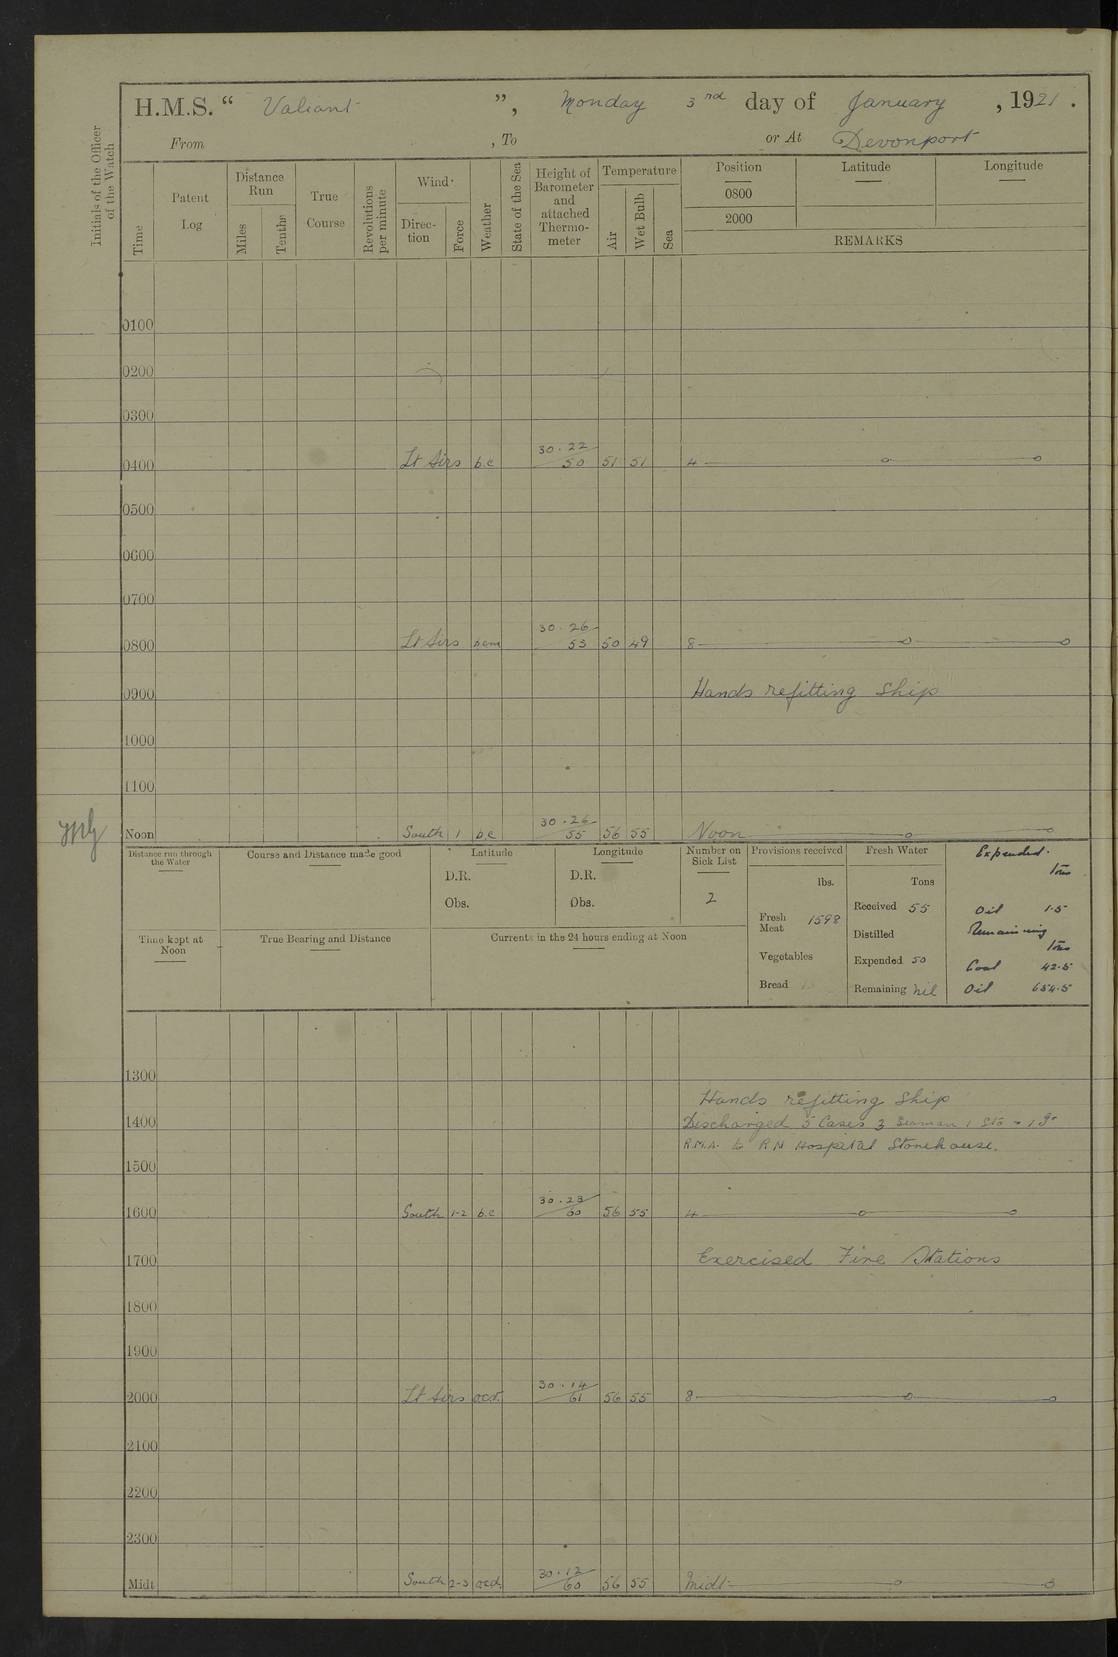 H.M.S. “ Valiant ”, Monday 3rd day of January , 1921 .
From , To or At Devonport
Initials of the Officer of the Watch
Time
Patent Log
Distance Run
Miles
Tenths
True Course
Revolutions per minute
Wind
Direc-tion
Force
Weather
State of the Sea
Height of Barometer and attached Thermo-meter
Temperature
Air
Wet Bulb
Sea
Position
0800
2000
Latitude
Longitude
REMARKS
0100
0200
0300
0400 Lt Airs b.c 30.22 50 51 51 4
0500
0600
0700
0800 Lt Airs 30.26 53 50 49 8
0900 Hands refitting Ship
1000
1100
Noon South 1 b.c 30.26 55 56 55 Noon
Distance run through the Water
Course and Distance made good
Latitude
D.R.
Obs.
Longitude
D.R.
Obs.
Number on Sick List
2
Provisions received
lbs.
Fresh Meat 1598
Vegetables
Bread
Fresh Water
Tons
Received 55
Distilled
Expended 50
Remaining nil
Expended.
Tons
Oil 1.5
Remaining
Tons
Coal 42.5
Oil 654.5
Time kept at Noon
True Bearing and Distance
Currents in the 24 hours ending at Noon
1300
Hands refitting Ship
1400 Discharged 5 Cases 3 Seaman 1 Sto
R.M.A. to R N Hospital Stonehouse.
1500
1600 South 1-2 b.c 30.23 60 56 55 4
1700 Exercised Fire Stations
1800
1900
2000 Lt Airs 30.14 61 56 55 8
2100
2200
2300
Midt South 2-3 30.12 60 56 55 Midt